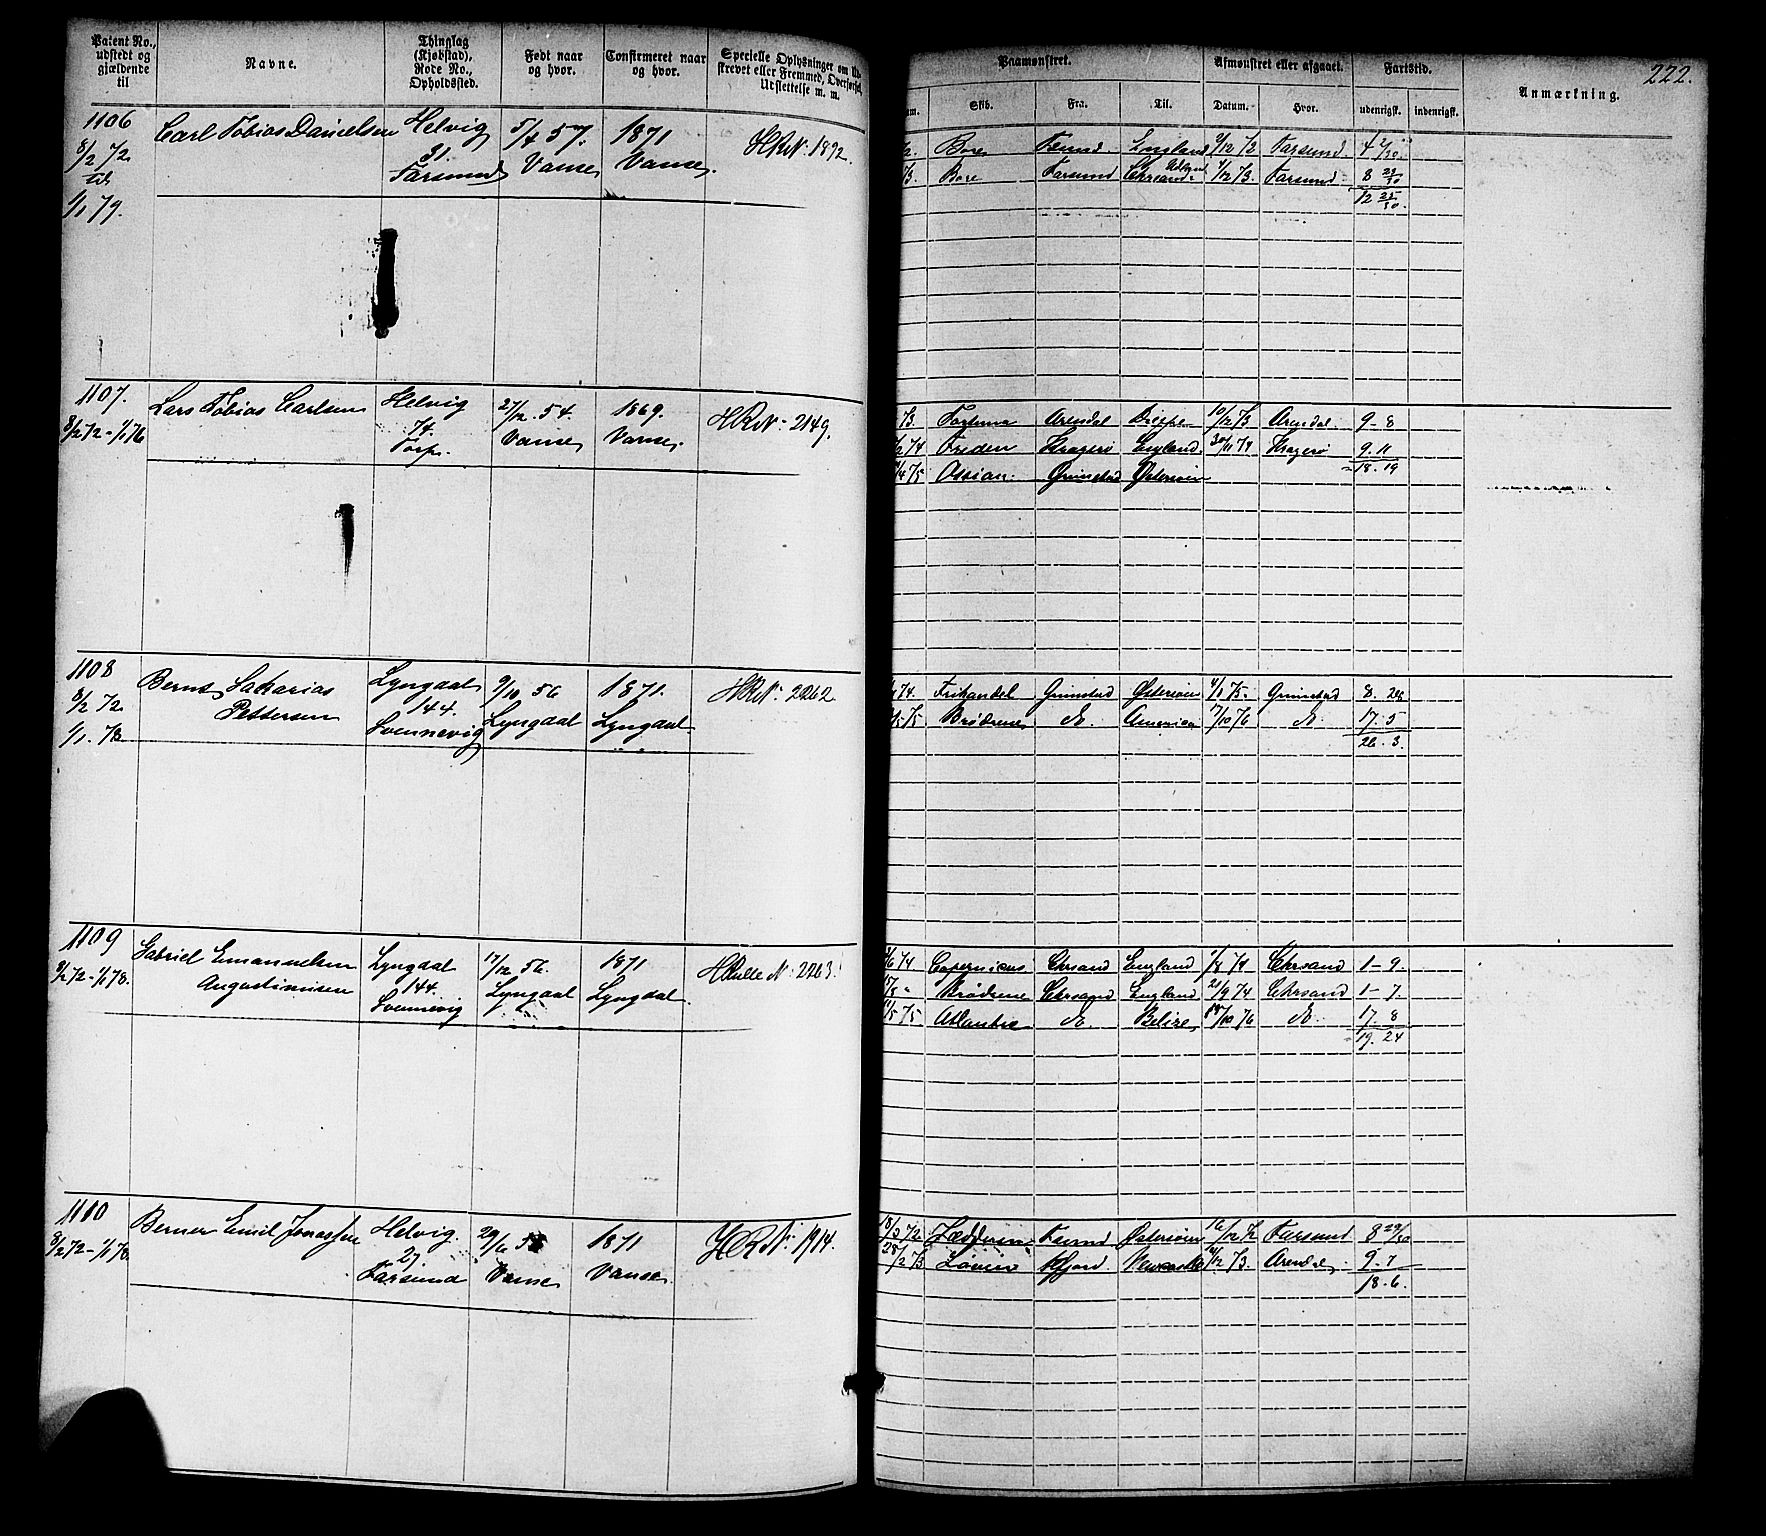 222.
Patent No., udstedt og gjældende til
Navne.
Thinglag (Kjøbstad), Rode No., Opholdssted.
Født naar og hvor.
Confirmeret naar og hvor.
Specielle Oplysninger om
strevet eller Fremmed, Overførsel,
Udslettelse m. m.
Paamønstret.
Skib.
Fra.
Til.
Afmønstret eller afgaaet.
Datum.
Hvor.
Fartstid.
udenrigsk.
indenrigsk.
Anmærkning.
1106
8/2 72
til
1/1 79.
Carl Tobias Danielsen
Helvig
31.
Farsund
5/4 57.
Vanse
1871
Vanse.
HR No 1892.
Bore Farsund England 9/12 72 Farsund
Bore Farsund Chrsand 1/12 73. Farsund 8 23/30
12 25/30.
1107.
8/2 72 - 1/1 76
Lars Tobias Carlsen
Helvig
74.
Torp.
27/12. 54.
Vanse
1869.
Vanse.
HR No 2149.
73. Fortuna Arendal Dieppe 10/12 73 Arendal. 9 - 8
74 Freden Kragerø England 30/11 74 Kragerø 9. 11
75 Ossian. Grimstad Østersøen 18. 19
1108
8/2 72
1/1. 78
Bernt Sakarias
Pettersen
Lyngdal
144.
Svennevig
9/10 56
Lyngdal
1871.
Lyngdal
HR No 2262
74. Frihandel Grimstad Østersøen 4/1 75 Grimstad 8. 28
75 Brødrene do. America 17/10 76 do. 17. 5
26. 3.
1109
8/2 72 - 1/1 78.
Gabriel Emanuelsen
Augustinusen
Lyngdal
144.
Svennevig
17/12 56.
Lyngdal
1871
Lyngdal.
HRulle No 2263.
74 Copernicus Chrsand England 1/8 74 Chrsand 1 - 9.
Brødrene Chrsand England 21/9 74 Chrsand 1 - 7.
75. Atlantic do. Belize 18/10 76 do. 17. 8
19. 24
1110
8/2 72 - 1/1 78
Berner Emil Jonassen
Helvig.
27
Farsund
29/6 55
Vanse
1871
Vanse.
HR No 1914.
18/3 72 Farsund Østersøen 16/12 72 Farsund 8 29/30
28/2 73 Løven Newcastle 73. Arendal 9. 7
18. 6.